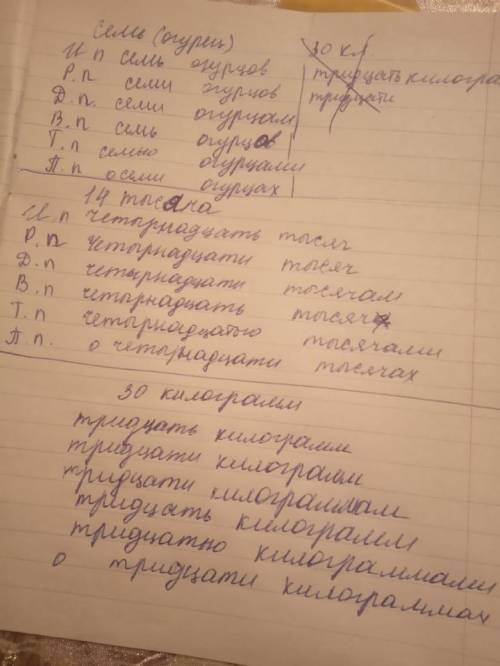 Семь (огурец)
И п семь огурцов
Р. п семи огурцов
Д. п. семи огурцам
В. п семь огурцов
Т. п семью огурцами
П. п о семи огурцах
30 кг
тридцать килогра
тридцати
14 тысяча
И. п четырнадцать тысяч
Р. п четырнадцати тысяч
Д. п четырнадцати тысячам
В. п четырнадцать тысяч
Т. п четырнадцатью тысячами
П. п. о четырнадцати тысячах
30 килограмм
тридцать килограмм
тридцати килограмм
тридцати килограммам
тридцать килограмм
тридцатью килограммами
о тридцати килограммах